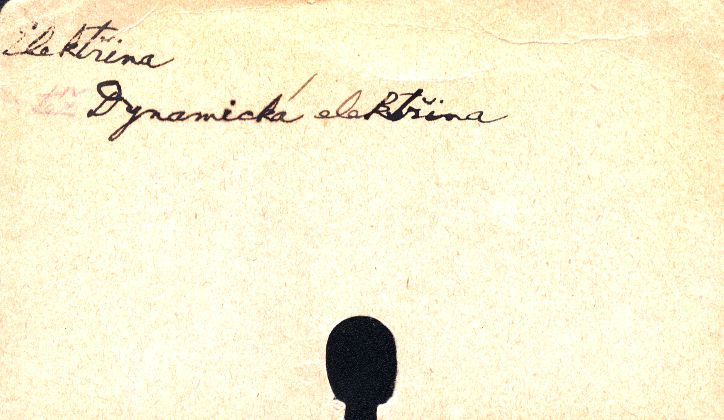 Elektřina
též Dynamická elektřina